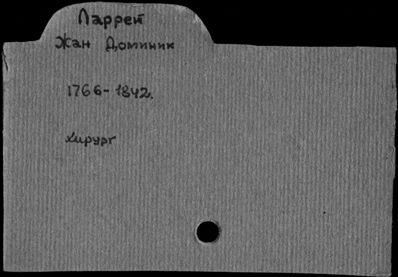 Ларрей
Жан Доминик
1766-1842.
хирург